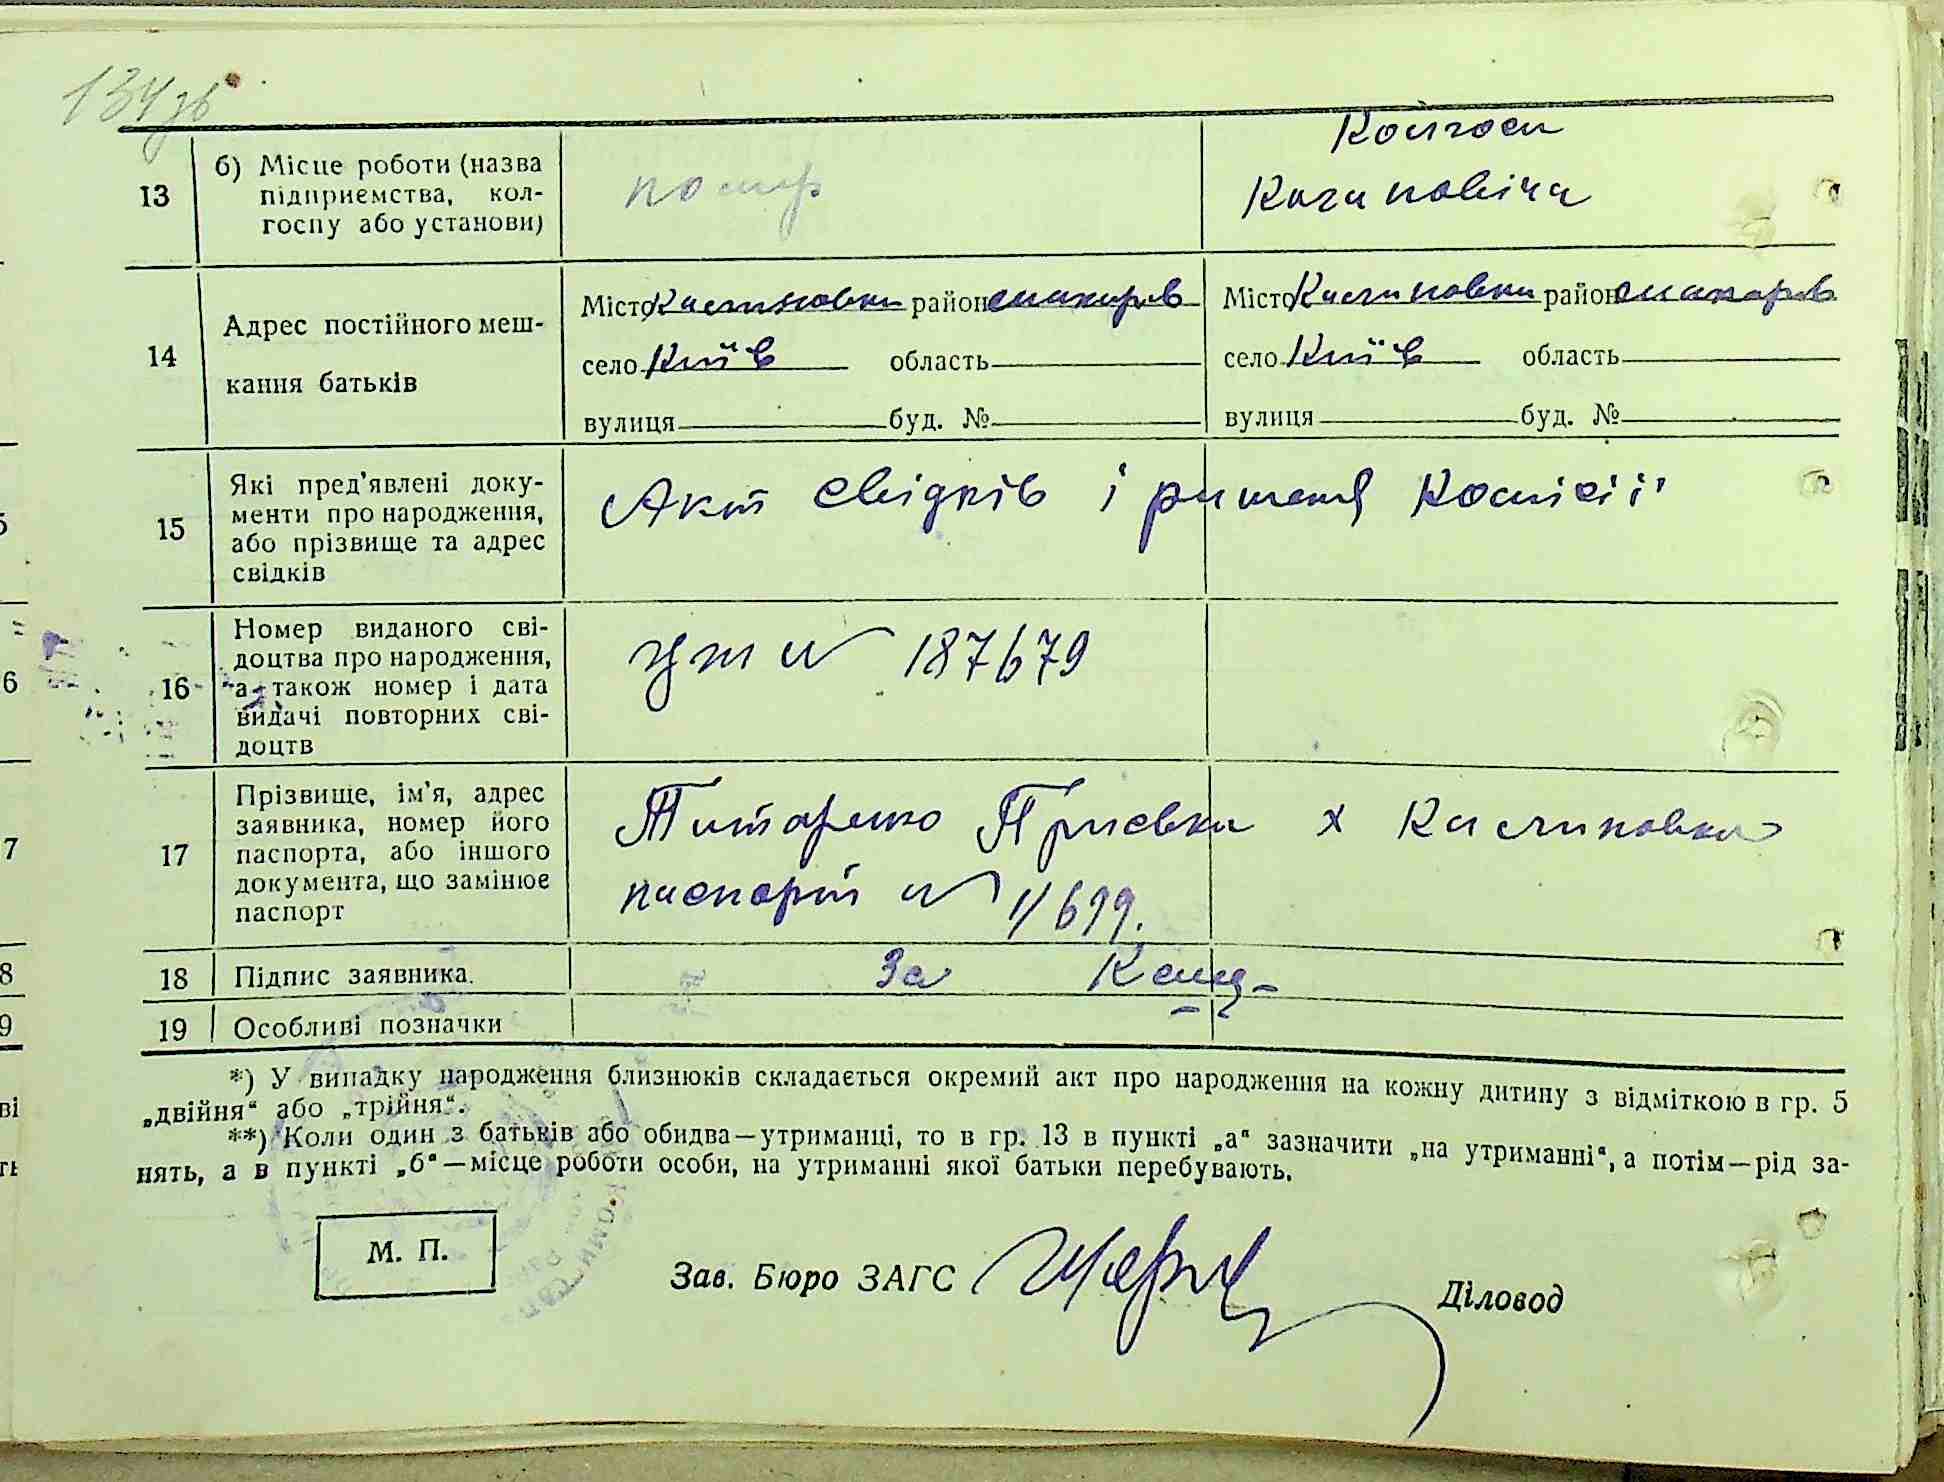 134зв
13
б) Місце роботи (назва
підприємства, кол-
госпу або установи)
помер
Колгосп
Кагановіча
14
Адрес постійного меш-
кання батьків
Місто район макарів
село Київ область
вулиця буд. №
Місто район макарів
село Київ область
вулиця буд. №
15
Які пред'явлені доку-
менти про народження,
або прізвище та адрес
свідків
Акт свідків і ришеня комісіі
16
Номер виданого сві-
доцтва про народження,
а також номер і дата
видачі повторних сві-
доцтв
№ 187679
17
Прізвище, ім'я, адрес
заявника, номер його
паспорта, або іншого
документа, що замінює
паспорт
Титаренко х
паспорт № 11699.
18
Підпис заявника.
За
19
Особливі позначки
*) У випадку народження близнюків складається окремий акт про народження на кожну дитину з відміткою в гр. 5
„двійня“ або „трійня“.
**) Коли один з батьків або обидва—утриманці, то в гр. 13 в пункті „а“ зазначити „на утриманні“, а потім—рід за-
нять, а в пункті „б“—місце роботи особи, на утриманні якої батьки перебувають.
М. П.
Зав. Бюро ЗАГС
Діловод